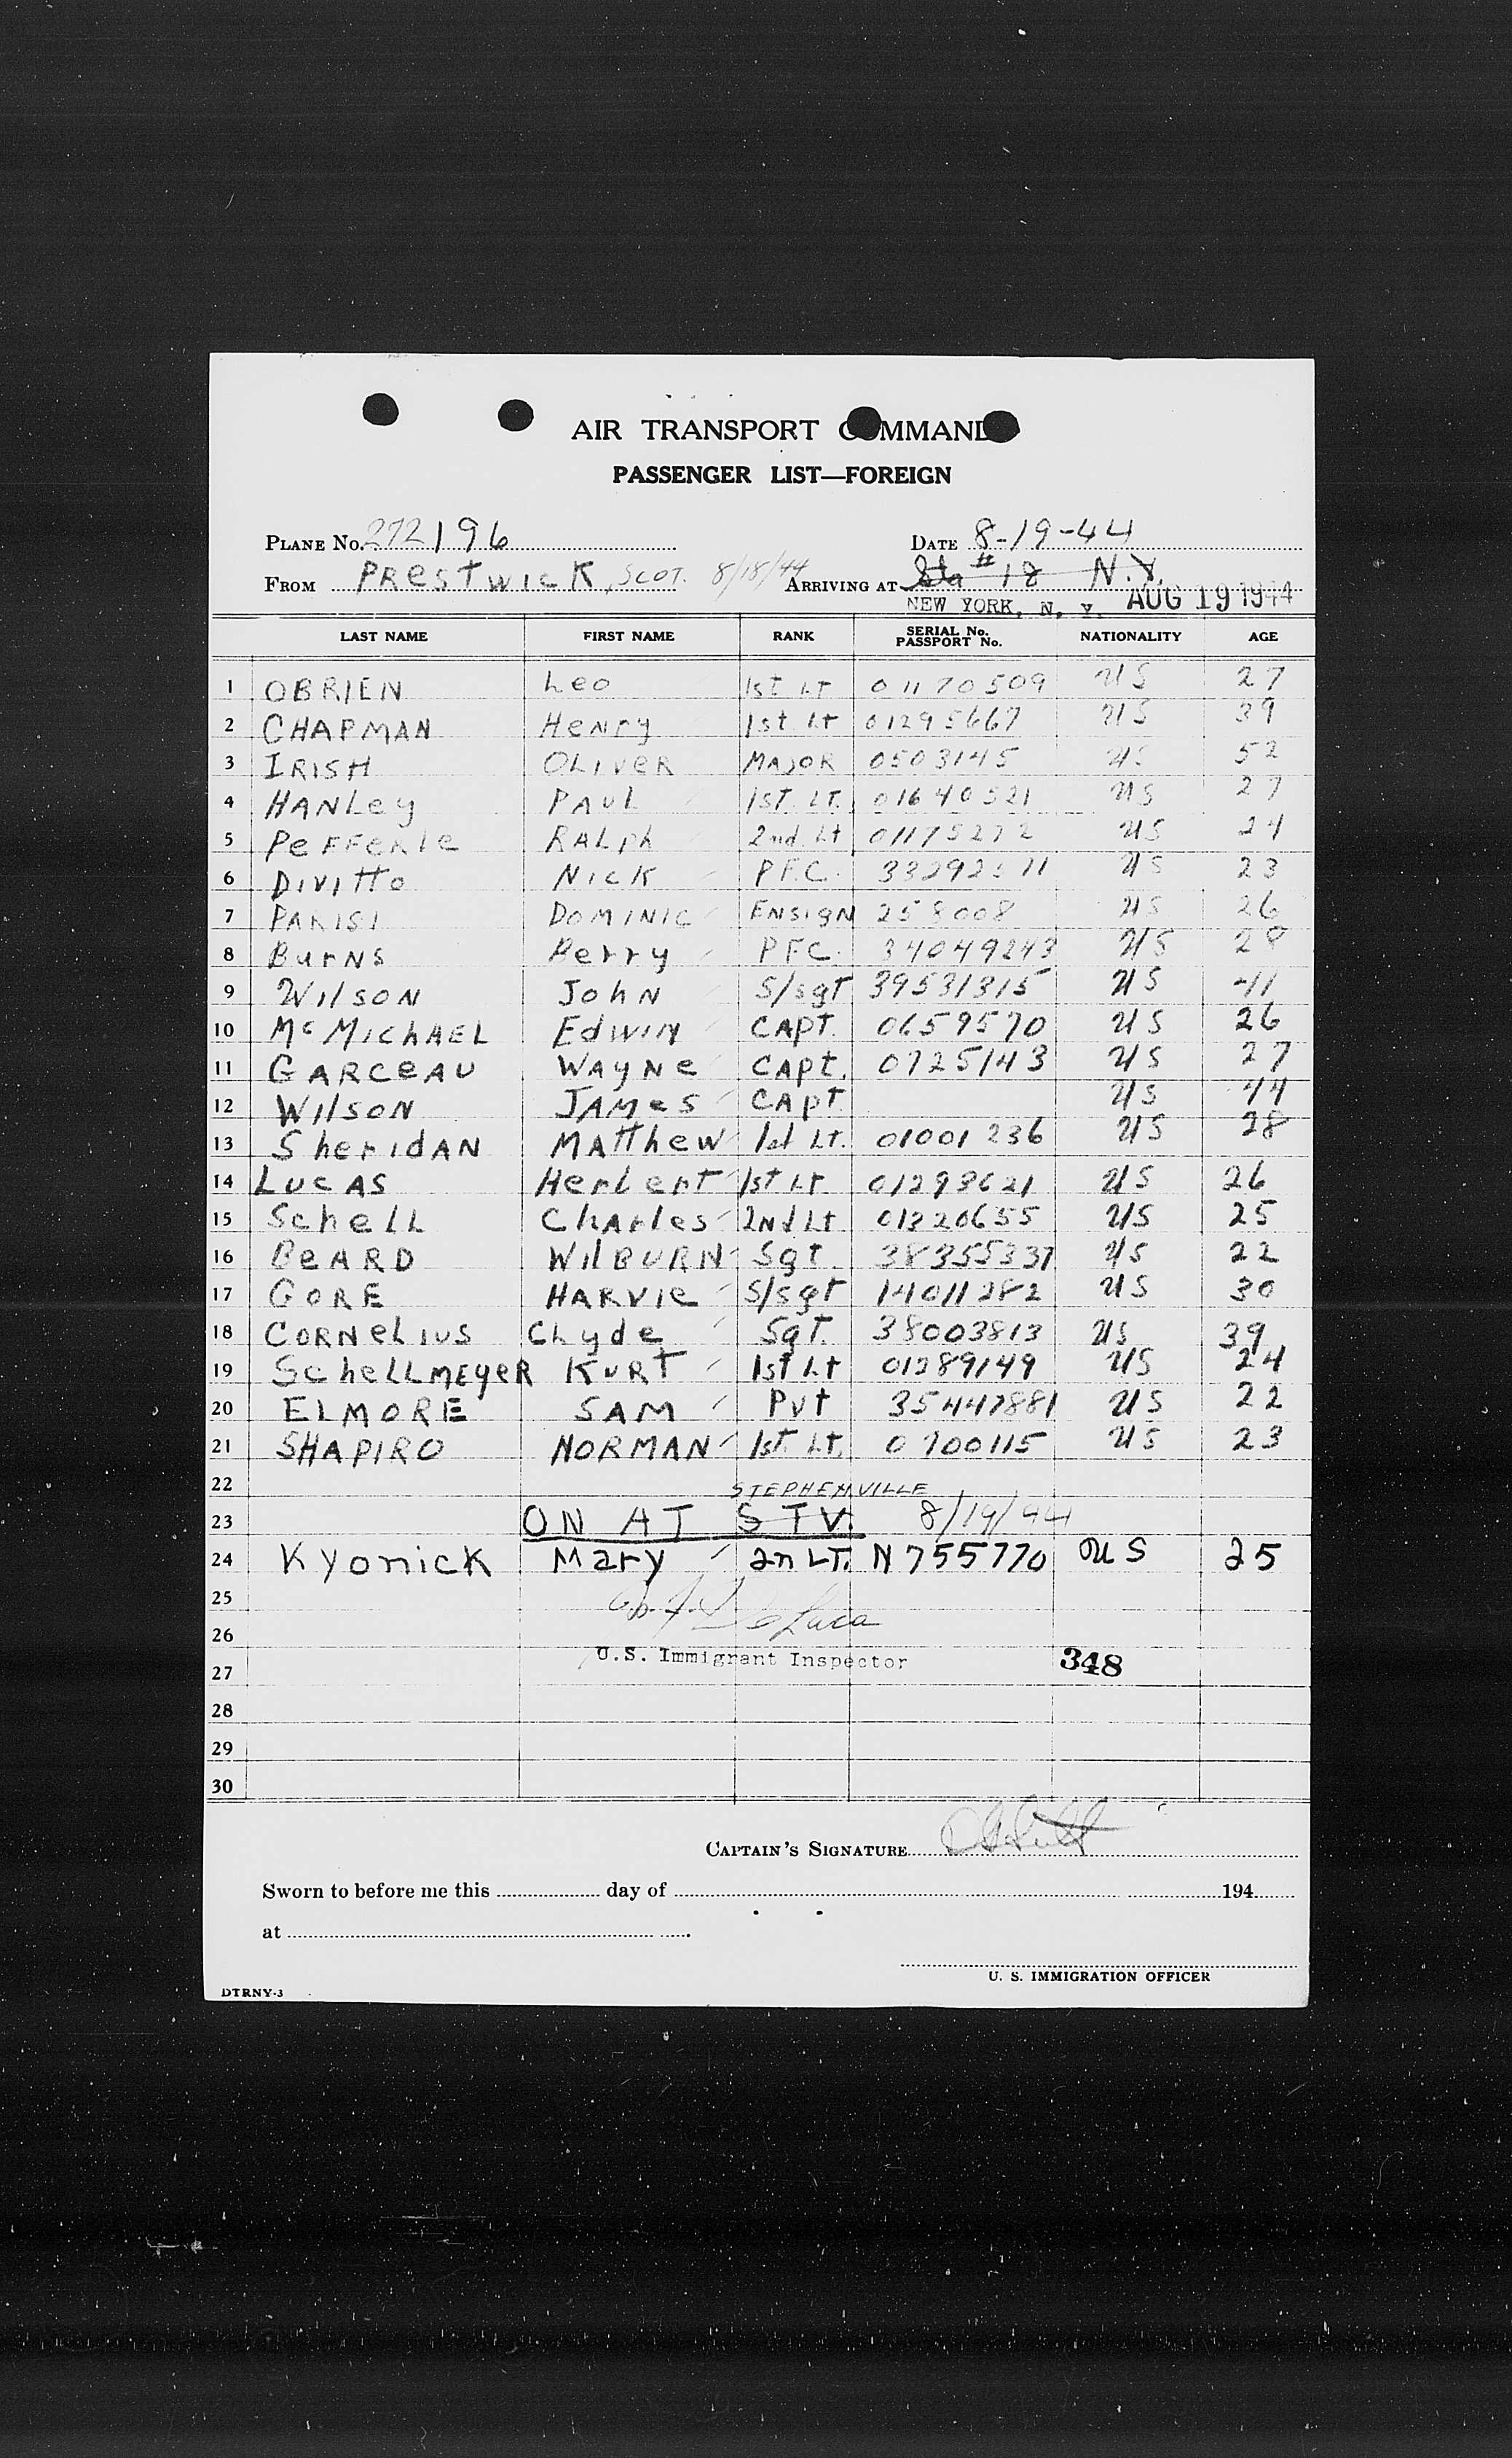 AIR TRANSPORT COMMAND
PASSENGER LIST—FOREIGN
PLANE No. 272196 DATE 8-19-44
FROM PRESTWICK, SCOT. 8/18/44 ARRIVING AT Sta # 18 N.Y.
NEW YORK, N. Y. AUG 19 1944
LAST NAME FIRST NAME RANK SERIAL No. PASSPORT No. NATIONALITY AGE
1 OBRIEN Leo 1st Lt 01170509 US 27
2 CHAPMAN Henry 1st Lt 01295667 US 39
3 IRISH OLIVER MAJOR 0503145 US 52
4 HANLey PAUL 1ST. LT. 01640521 US 27
5 PeFFeRle RALph 2nd. Lt 01175272 US 24
6 DIVITTO NICK PFC. US 23
7 PARISI DOMINIC ENSIGN 258008 US 26
8 BurNS Perry PFC. 34049243 US 28
9 WIlSON JohN S/sgt 39531315 US 41
10 McMIChAEL EdWIN CAPT. 0659570 US 26
11 GARCeAU WAYNe CApt. 0725143 US 27
12 WIlSON JAMeS CApt. US 44
13 SherIdAN MATThew 1st Lt. 01001236 US 28
14 LUCAS HerberT 1st Lt 01293621 US 26
15 ScheLL ChArles 2Nd Lt 01320655 US 25
16 BeARD WIlBURN Sgt. 38355337 US 22
17 GORE HARVIe S/sgt 14011282 US 30
18 CORNeLIUS Clyde Sgt. 38003813 US 39
19 SchELLMEYeR KURT 1st Lt 01289149 US 24
20 ELMORE SAM Pvt 35447881 US 22
21 SHAPIRO NORMAN 1st. Lt. 0700115 US 23
22 STEPHENVILLE
23 ON AT STV. 8/19/44
24 Kyonick Mary 2n LT. N755770 US 25
25 De Luca
26
U.S. Immigrant Inspector 348
27
28
29
30
CAPTAIN'S SIGNATURE
Sworn to before me this day of 194
at
U. S. IMMIGRATION OFFICER
DTRNY-3